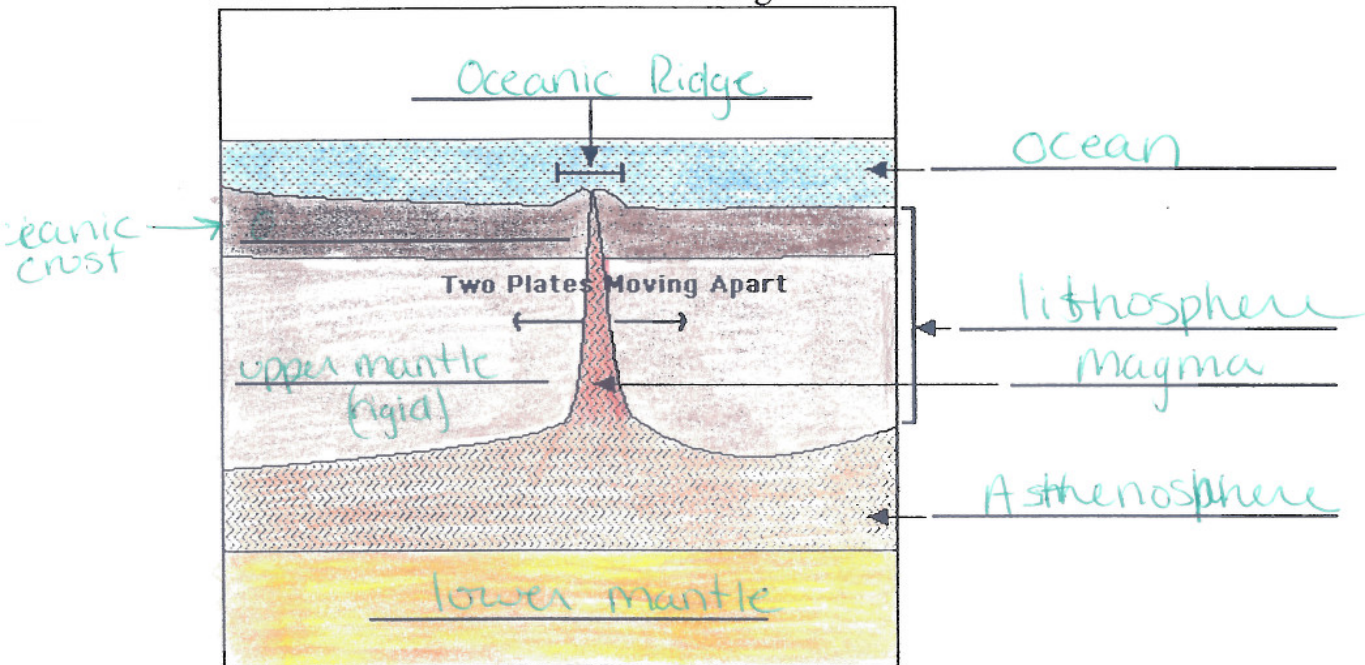 Oceanic Ridge
Ocean
crust
Two Plates Moving Apart
lithosphere
upper mantle
(rigid)
Magma
Asthenosphere
lower mantle